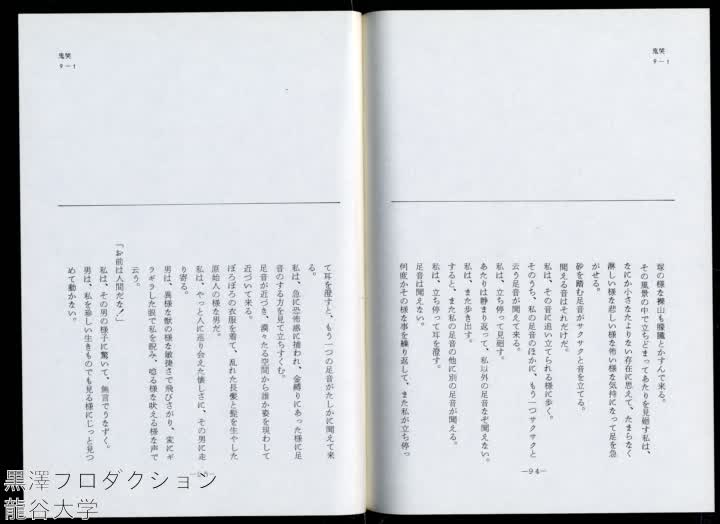 鬼哭
9—1
塚の様な裸山も朦朧とかすんで来る。
その風景の中で立ちどまってあたりを見廻す私は、
なにか小さなたよりない存在に思えて、たまらなく
淋しい様な悲しい様な怖い様な気持になって足を急
がせる。
砂を踏む足音がサクサクと音を立てる。
聞える音はそれだけだ。
私は、その音に追い立てられる様に歩く。
そのうち、私の足音のほかに、もう一つサクサクと
云う足音が聞えて来る。
私は、立ち停って見廻す。
あたりは静まり返って、私以外の足音なぞ聞えない。
私は、また歩き出す。
すると、また私の足音の他に別の足音が聞える。
私は、立ち停って耳を澄す。
足音は聞えない。
何度かその様な事を繰り返して、また私が立ち停っ
—94—
鬼哭
9—1
て耳を澄すと、もう一つの足音がたしかに聞えて来
る。
私は、急に恐怖感に捕われ、金縛りにあった様に足
音のする方を見て立ちすくむ。
足音が近づき、漠々たる空間から誰か姿を現わして
近づいて来る。
ぼろぼろの衣服を着て、乱れた長髪と髭を生やした
原始人の様な男だ。
私は、やっと人に巡り会えた懐しさに、その男に走
り寄る。
男は、異様な獣の様な敏捷さで飛びさがり、変にギ
ラギラした眼で私を睨み、唸る様な吠える様な声で
云う。
「お前は人間だな！」
私は、その男の様子に驚いて、無言でうなずく。
男は、私を珍しい生きものでも見る様にじっと見つ
めて動かない。
黒澤プロダクション
龍谷大学